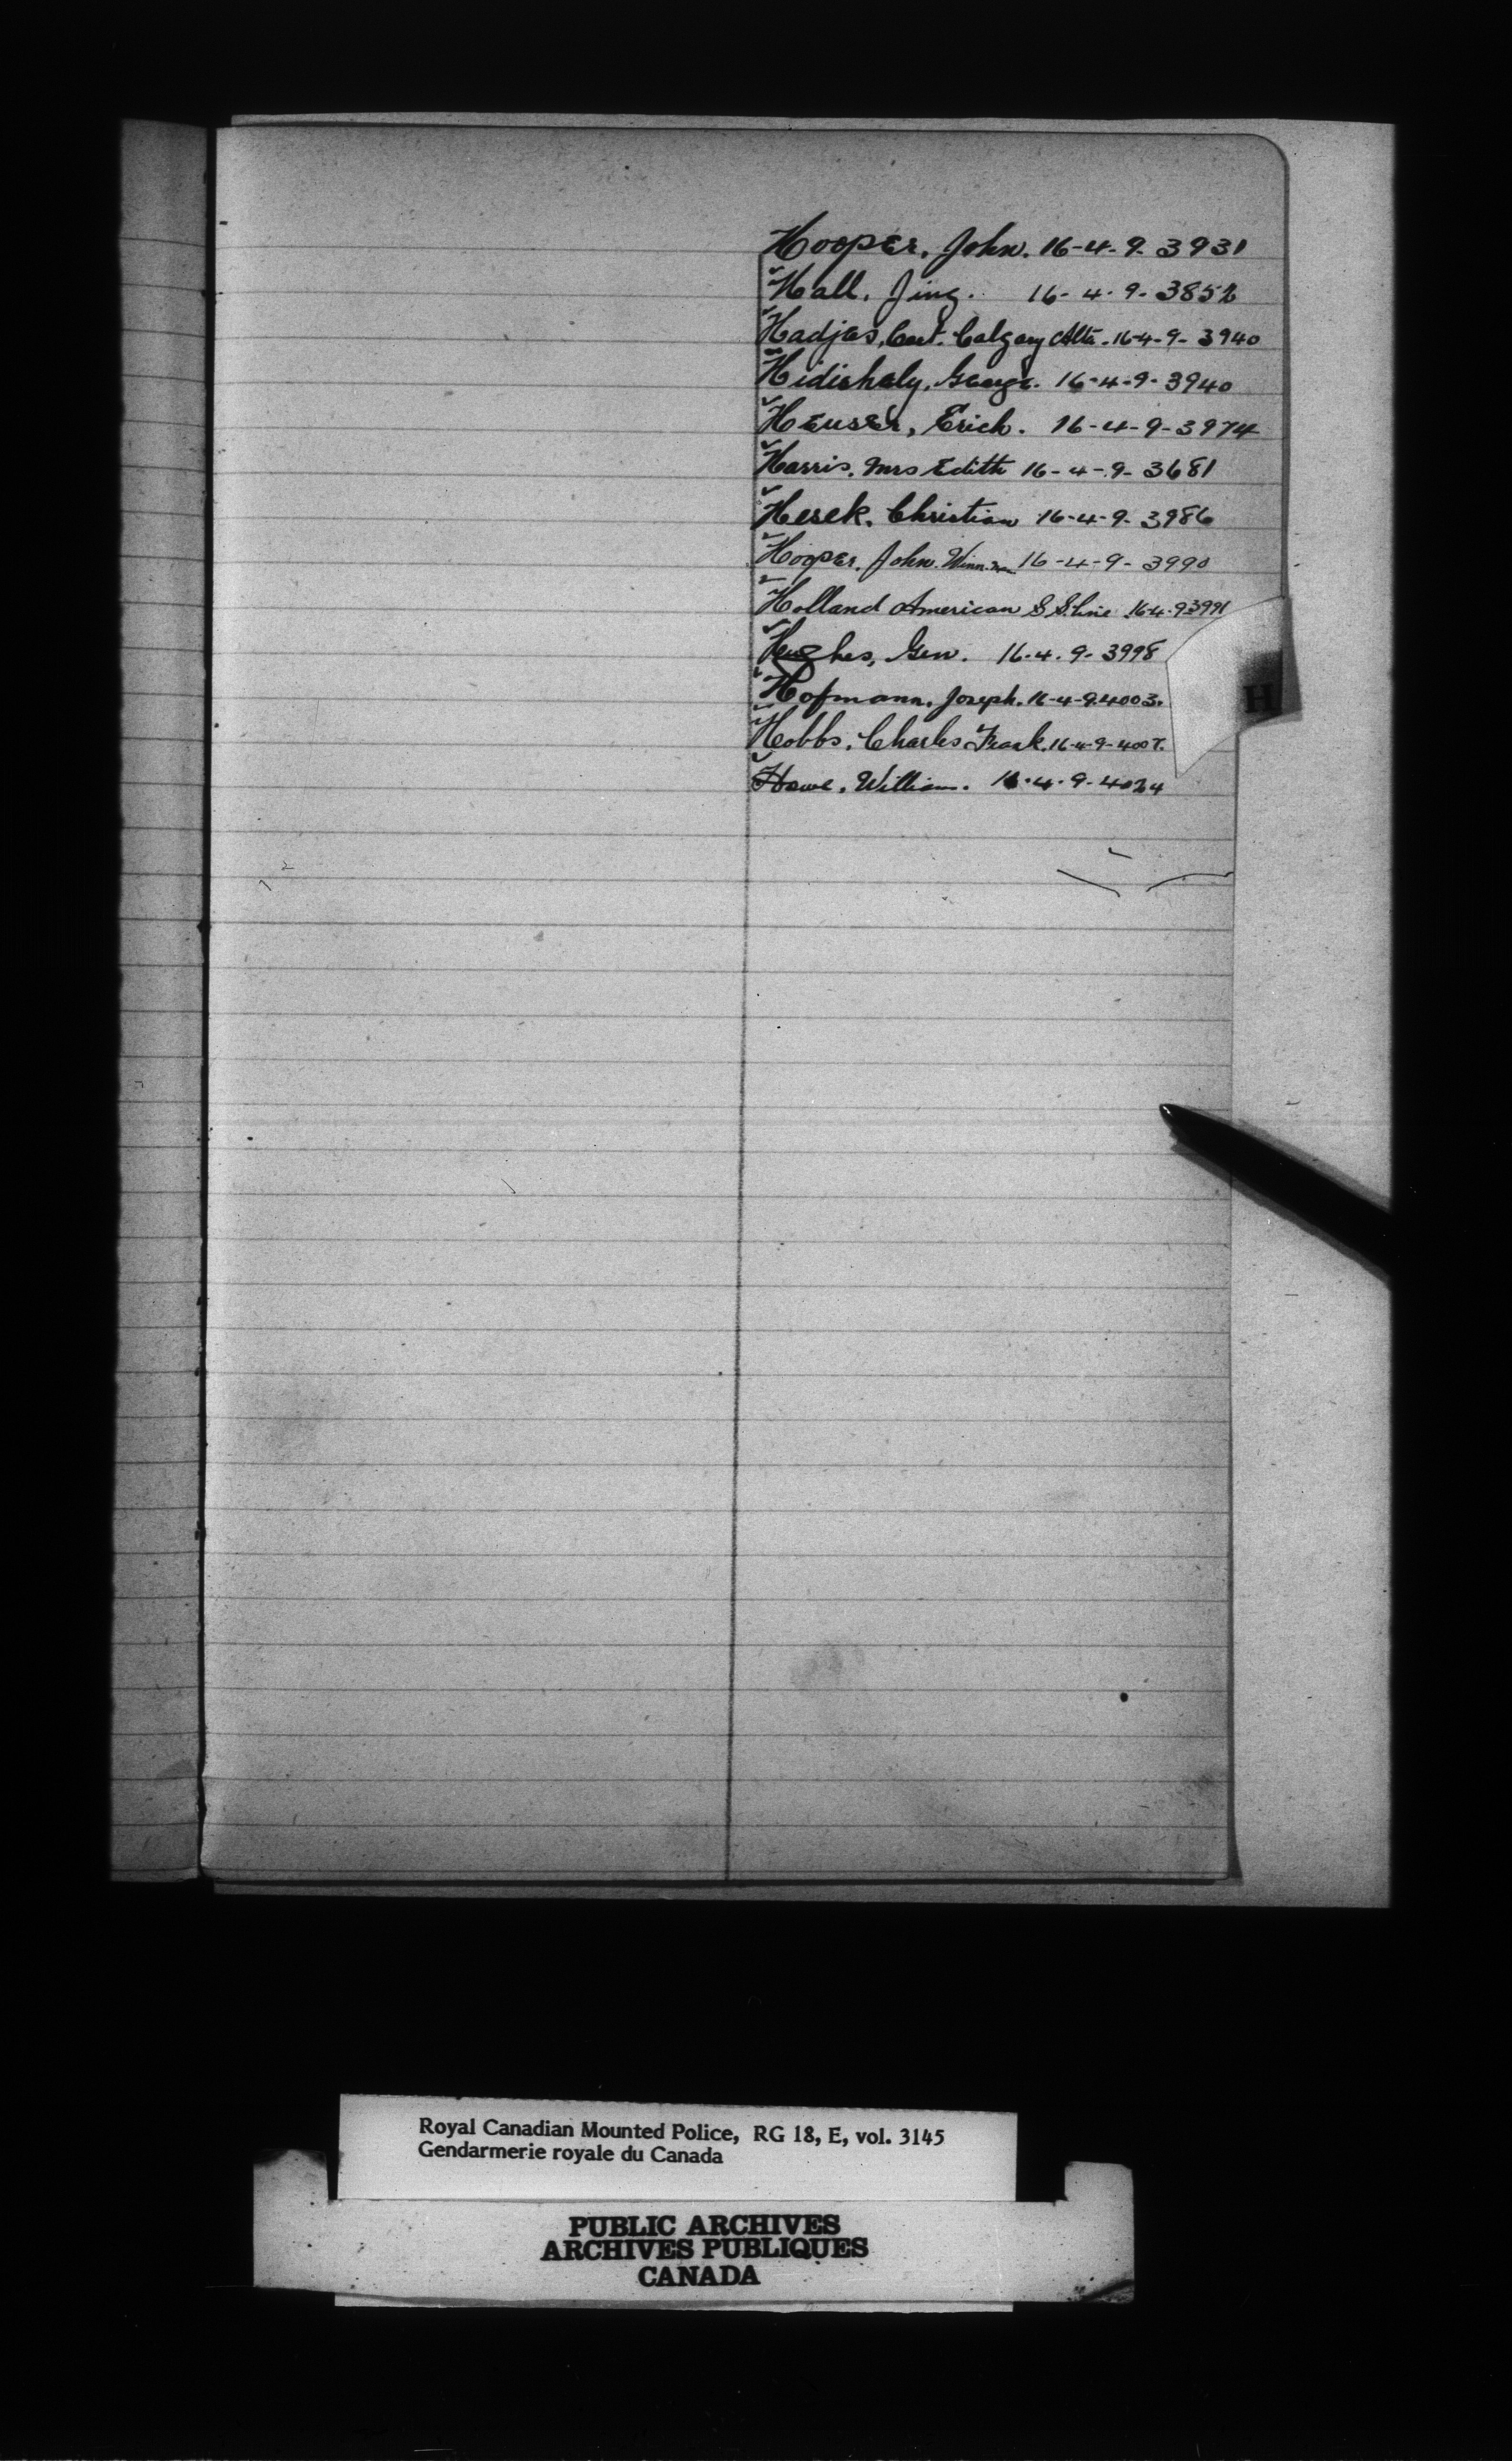 Hooper, John. 16-4-9-3931
Hall, Jing. 16-4-9-3852
Hadjes, Calgary Alta. 16-4-9-3940
Hidichaly, George. 16-4-9-3940
Heuser, Erich. 16-4-9-3974
Harris, Mrs Edith 16-4-9-3681
Hesek, Christian 16-4-9-3986
Hooper, John. Winn. Man 16-4-9-3990
Holland American S S. Line 16-4-9 3991
Hughes, Gen. 16-4-9-3998
Hofmann, Joseph. 16-4-9-4003.
Hobbs, Charles Frank. 16-4-9-4007.
Howe, William. 16-4-9-4024
H
Royal Canadian Mounted Police, RG 18, E, vol. 3145
Gendarmerie royale du Canada
PUBLIC ARCHIVES
ARCHIVES PUBLIQUES
CANADA